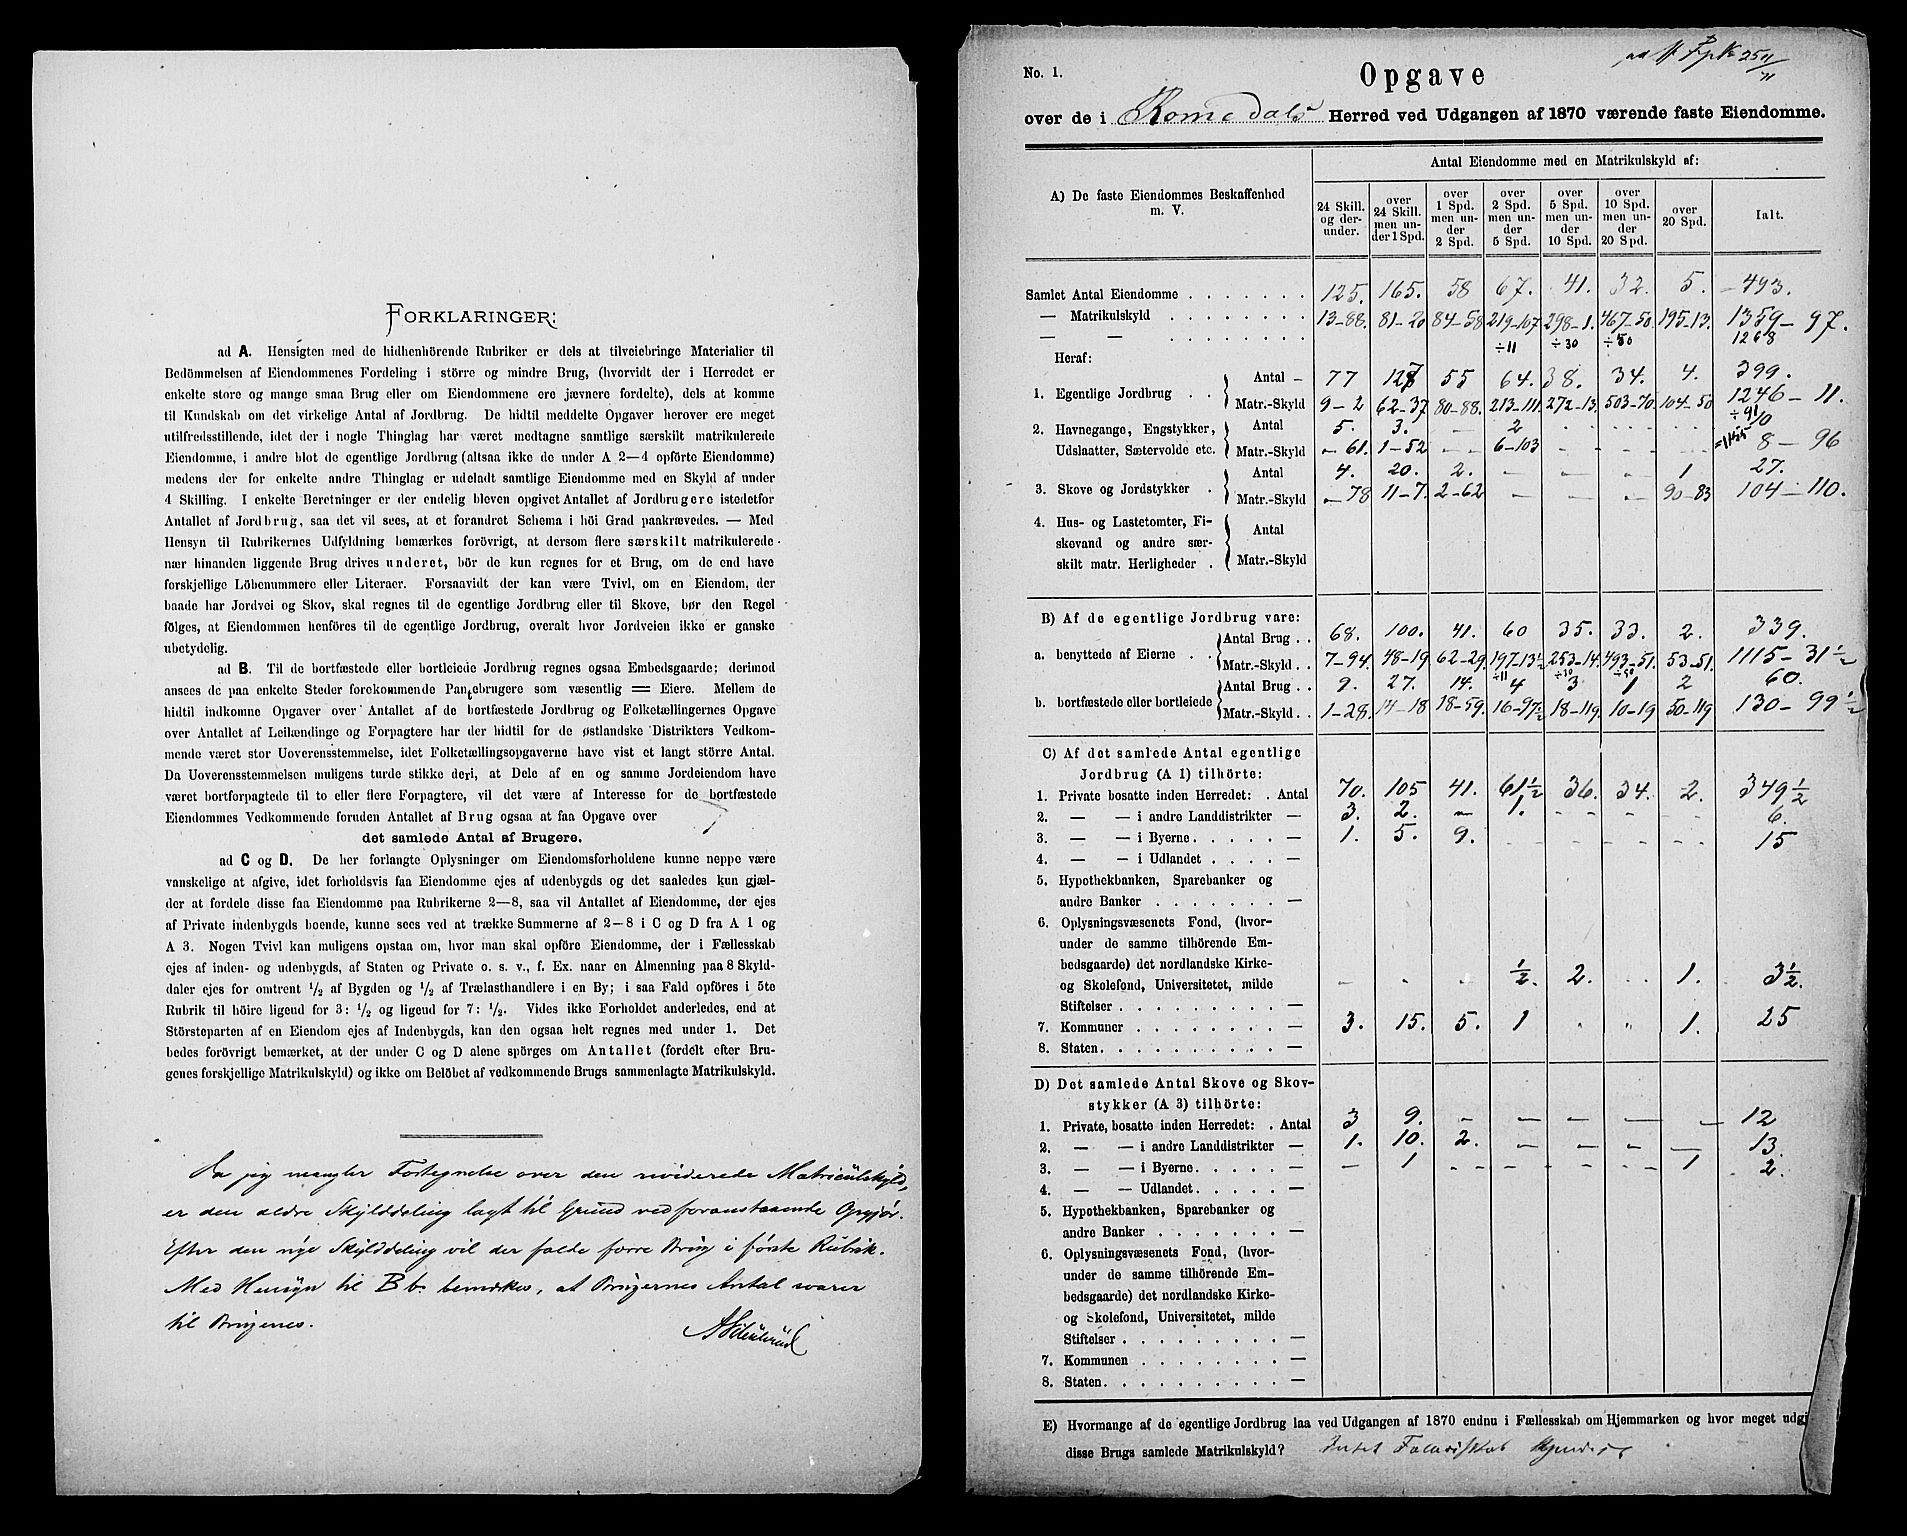 FORKLARINGER:
ad A. Hensigten med de hidhenhörende Rubriker er dels at tilveiebringe Materialier til
Bedömmelsen af Eiendommenes Fordeling i större og mindre Brug, (hvorvidt der i Herredet er
enkelte store og mange smaa Brug eller om Eiendommene ere jævnere fordelte), dels at komme
til Kundskab om det virkelige Antal af Jordbrug. De hidtil meddelte Opgaver herover ere meget
utilfredsstillende, idet der i nogle Thinglag har været medtagne samtlige særskilt matrikulerede
Eiendomme, i andre blot de egentlige Jordbrug (altsaa ikke de under A 2—4 opförte Eiendomme)
medens der for enkelte andre Thinglag er udeladt samtlige Eiendomme med en Skyld af under
4 Skilling. I enkelte Beretninger er der endelig bleven opgivet Antallet af Jordbrugere istedetfor
Antallet af Jordbrug, saa det vil sees, at et forandret Schema i höi Grad paakrævedes. — Med
Hensyn til Rubrikernes Udfyldning bemærkes forövrigt, at dersom flere særskilt matrikulerede
nær hinanden liggende Brug drives underet, bör de kun regnes for et Brug, om de end have
forskjellige Löbenummere eller Literaer. Forsaavidt der kan være Tvivl, om en Eiendom, der
baade har Jordvei og Skov, skal regnes til de egentlige Jordbrug eller til Skove, bør den Regel
fölges, at Eiendommen henföres til de egentlige Jordbrug, overalt hvor Jordveien ikke er ganske
ubetydelig.
ad B. Til de bortfæstede eller bortleiede Jordbrug regnes ogsaa Embedsgaarde; derimod
ansees de paa enkelte Steder forekommende Pantebrugere som væsentlig = Eiere. Mellem de
hidtil indkomne Opgaver over Antallet af de bortfæstede Jordbrug og Folketællingernes Opgave
over Antallet af Leilændinge og Forpagtere har der hidtil for de østlandske Distrikters Vedkom-
mende været stor Uoverensstemmelse, idet Folketællingsopgaverne have vist et langt större Antal.
Da Uoverensstemmelsen muligens turde stikke deri, at Dele af en og samme Jordeiendom have
været bortforpagtede til to eller flere Forpagtere, vil det være af Interesse for de bortfæstede
Eiendommes Vedkommende foruden Antallet af Brug ogsaa at faa Opgave over
det samlede Antal af Brugere.
ad C og D. De her forlangte Oplysninger om Eiendomsforholdene kunne neppe være
vanskelige at afgive, idet forholdsvis faa Eiendomme ejes af udenbygds og det saaledes kun gjæl-
der at fordele disse faa Eiendomme paa Rubrikerne 2—8, saa vil Antallet af Eiendomme, der ejes
af Private indenbygds boende, kunne sees ved at trække Summerne af 2—8 i C og D fra A 1 og
A 3. Nogen Tvivl kan muligens opstaa om, hvor man skal opföre Eiendomme, der i Fællesskab
ejes af inden- og udenbygds, af Staten og Private o. s. v., f. Ex. naar en Almenning paa 8 Skyld-
daler ejes for omtrent 1/2 af Bygden og 1/2 af Trælasthandlere i en By; i saa Fald opföres i 5te
Rubrik til höire ligeud for 3: 1/2 og ligeud for 7: 1/2. Vides ikke Forholdet anderledes, end at
Störsteparten af en Eiendom ejes af Indenbygds, kan den ogsaa helt regnes med under 1. Det
bedes forövrigt bemærket, at der under C og D alene spörges om Antallet (fordelt efter Bru-
genes forskjellige Matrikulskyld) og ikke om Belöbet af vedkommende Brugs sammenlagte Matrikulskyld.
Da jeg mangler Fortegnelse over den reviderede Matriculskyld,
er den ældre Skylddeling lagt til Grund ved foranstaaende Opgjør.
Efter den nye Skylddeling vil der falde færre Brug i første Rubrik.
Med Hensyn til B b. bemærkes, at Brugernes Antal svarer
til Brugenes.
No. 1.
Opgave
over de i Romedals Herred ved Udgangen af 1870 værende faste Eiendomme.
A) De faste Eiendommes Beskaffenhed m. V.
Antal Eiendomme med en Matrikulskyld af:
24 Skill. og der- under. over 24 Skill. men un- der 1 Spd. over 1 Spd. men un- der 2 Spd. over 2 Spd. men un- der 5 Spd. over 5 Spd. men un- der 10 Spd. over 10 Spd. men un- der 20 Spd. over 20 Spd. Ialt.
Samlet Antal Eiendomme 125. 165. 58 67. 41. 32. 5. 493.
— Matrikulskyld 13-88. 81-20 84-58 219-107 298-1. 467-50 195-13. 1359-97.
— — ÷11 ÷30 ÷50 1268
Heraf:
1. Egentlige Jordbrug Antal 77 127 55 64. 38. 34. 4. 399.
Matr.-Skyld 9-2 62-37 80-88. 213-111. 272-13. 503-70. 104-50 1246-11.
÷91
2. Havnegange, Engstykker, Antal 5. 3. — 2 10
Udslaatter, Sætervolde etc. Matr.-Skyld -61. 1-52 — 6-103 =1155 8-96
3. Skove og Jordstykker Antal 4. 20. 2. — — — 1 27.
Matr.-Skyld -78 11-7. 2-62 — — — 90-83 104-110.
4. Hus- og Lastetomter, Fi- Antal
skevand og andre sær-
skilt matr. Herligheder Matr.-Skyld
B) Af de egentlige Jordbrug vare:
a. benyttede af Eierne Antal Brug 68. 100. 41. 60 35. 33. 2. 339.
Matr.-Skyld 7-94. 48-19 62-29. 197-13½ 253-14. 493-51. 53-51. 1115-31½
÷11 ÷30 ÷50
b. bortfæstede eller bortleiede Antal Brug 9. 27. 14. 4 3 1 2 60.
Matr.-Skyld 1-28. 14-18 18-59. 16-97½ 18-119. 10-19 50-119 130-99½
C) Af det samlede Antal egentlige
Jordbrug (A 1) tilhörte:
1. Private bosatte inden Herredet: Antal 70. 105 41. 61½ 36. 34. 2. 349½
2. — — i andre Landdistrikter — 3. 2. — 1. 6.
3. — — i Byerne — 1. 5. 9. 15
4. — — i Udlandet —
5. Hypothekbanken, Sparebanker og
andre Banker —
6. Oplysningsvæsenets Fond, (hvor-
under de samme tilhörende Em-
bedsgaarde) det nordlandske Kirke-
og Skolefond, Universitetet, milde ½ 2. 1. 3½
Stiftelser —
7. Kommuner — 3. 15. 5. 1 1. 25
8. Staten —
D) Det samlede Antal Skove og Skov-
stykker (A 3) tilhörte:
1. Private, bosatte inden Herredet: Antal 3 9. — — — — — 12
2. — — i andre Landdistrikter — 1. 10. 2. — — — — 13.
3. — — i Byerne — — 1 1 2.
4. — — Udlandet —
5. Hypothekbanken, Sparebanker og
andre Banker —
6. Oplysningsvæsenets Fond, (hvor-
under de samme tilhörende Em-
bedsgaarde) det nordlandske Kirke-
og Skolefond, Universitetet, milde
Stiftelser —
7. Kommunen —
8. Staten —
E) Hvormange af de egentlige Jordbrug laa ved Udgangen af 1870 endnu i Fællesskab om Hjemmarken og hvor meget udgj
disse Brugs samlede Matrikulskyld? Intet